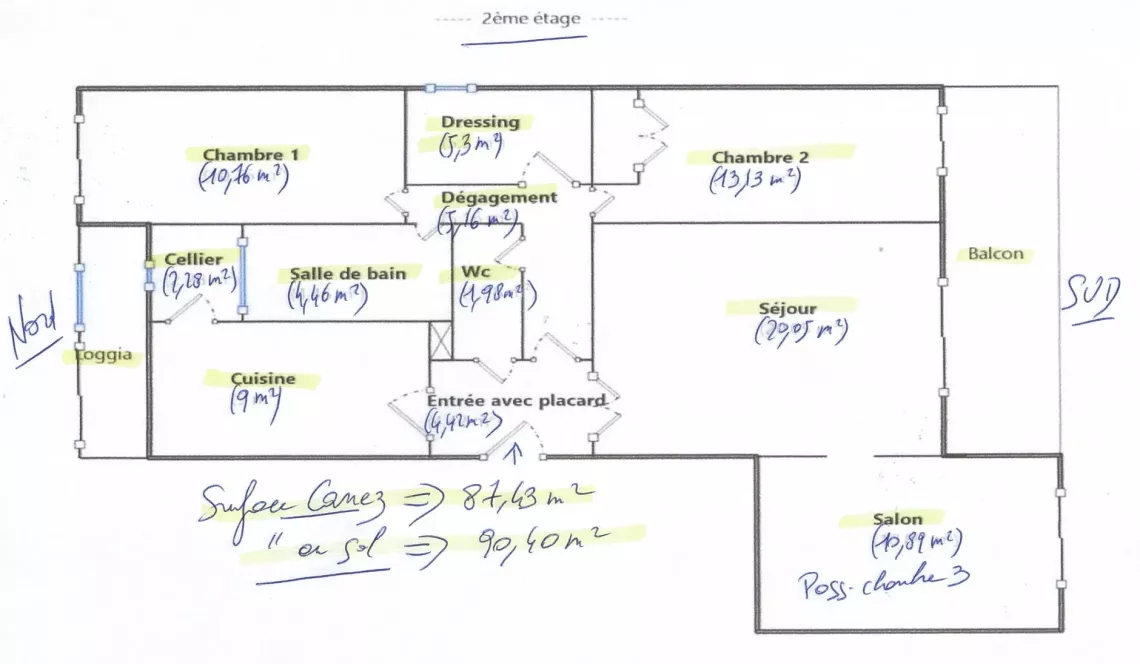 2ème étage
Dressing
(5,3 m²)
Chambre 1
(10,76 m²)
Chambre 2
(13,13 m²)
Dégagement
(5,16 m²)
Cellier
(2,28 m²)
Salle de bain
(4,46 m²)
Wc
(1,98 m²)
Balcon
Séjour
(20,05 m²)
SUD
Nord
Loggia
Cuisine
(9 m²)
Entrée avec placard
(4,42 m²)
Surface Carrez => 87,43 m²
" au sol => 90,40 m²
Salon
(10,89 m²)
Poss. chambre 3